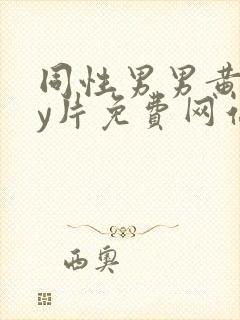 同性男男黄
y片免费网
西奥